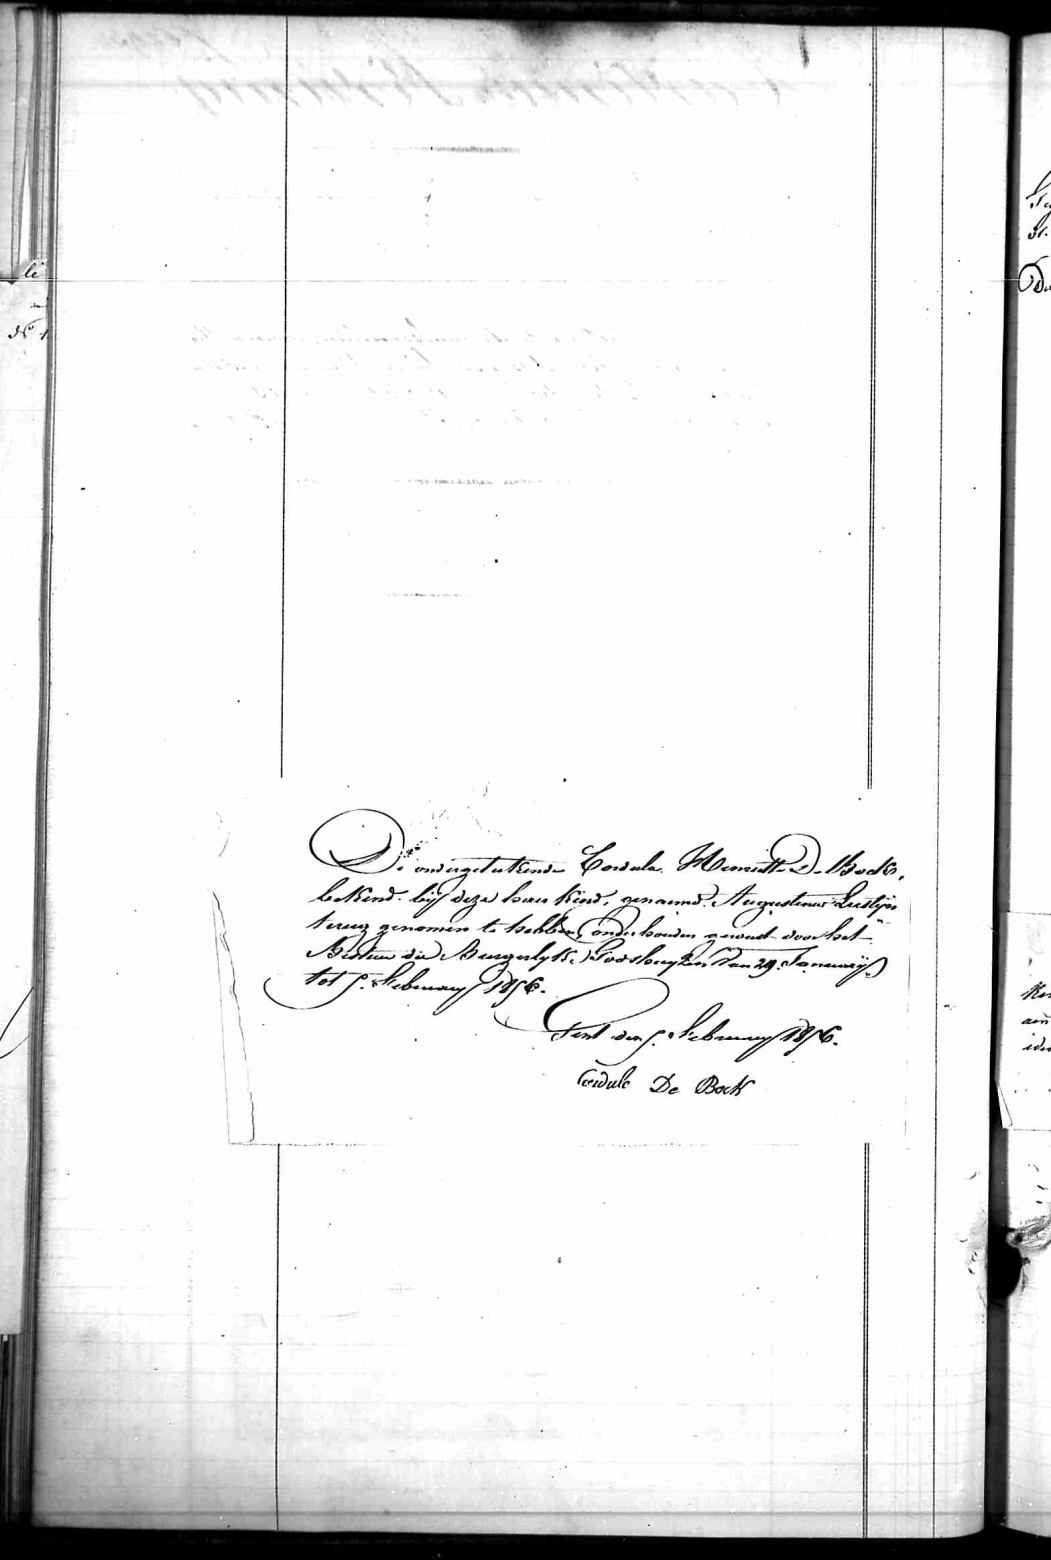 De ondergeteekende Cordula Henriette De Bock,
bekend bij deze haer kind, genaemd Augustinus
terug genomen te hebben onderhouden geweest door het
Bestier der Burgerlyke Godshuyzen van 29 January
tot 5 February 1856.
Gent den 5 February 1856.
Cordule De Bock